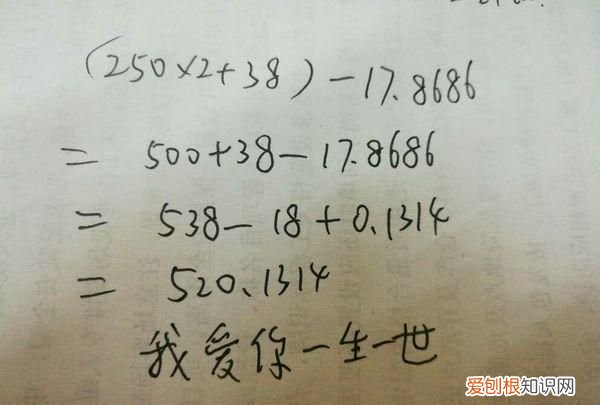 (250×2+38)-17.8686
= 500+38-17.8686
= 538-18+0.1314
= 520.1314
我爱你一生一世
爱刨根知识网